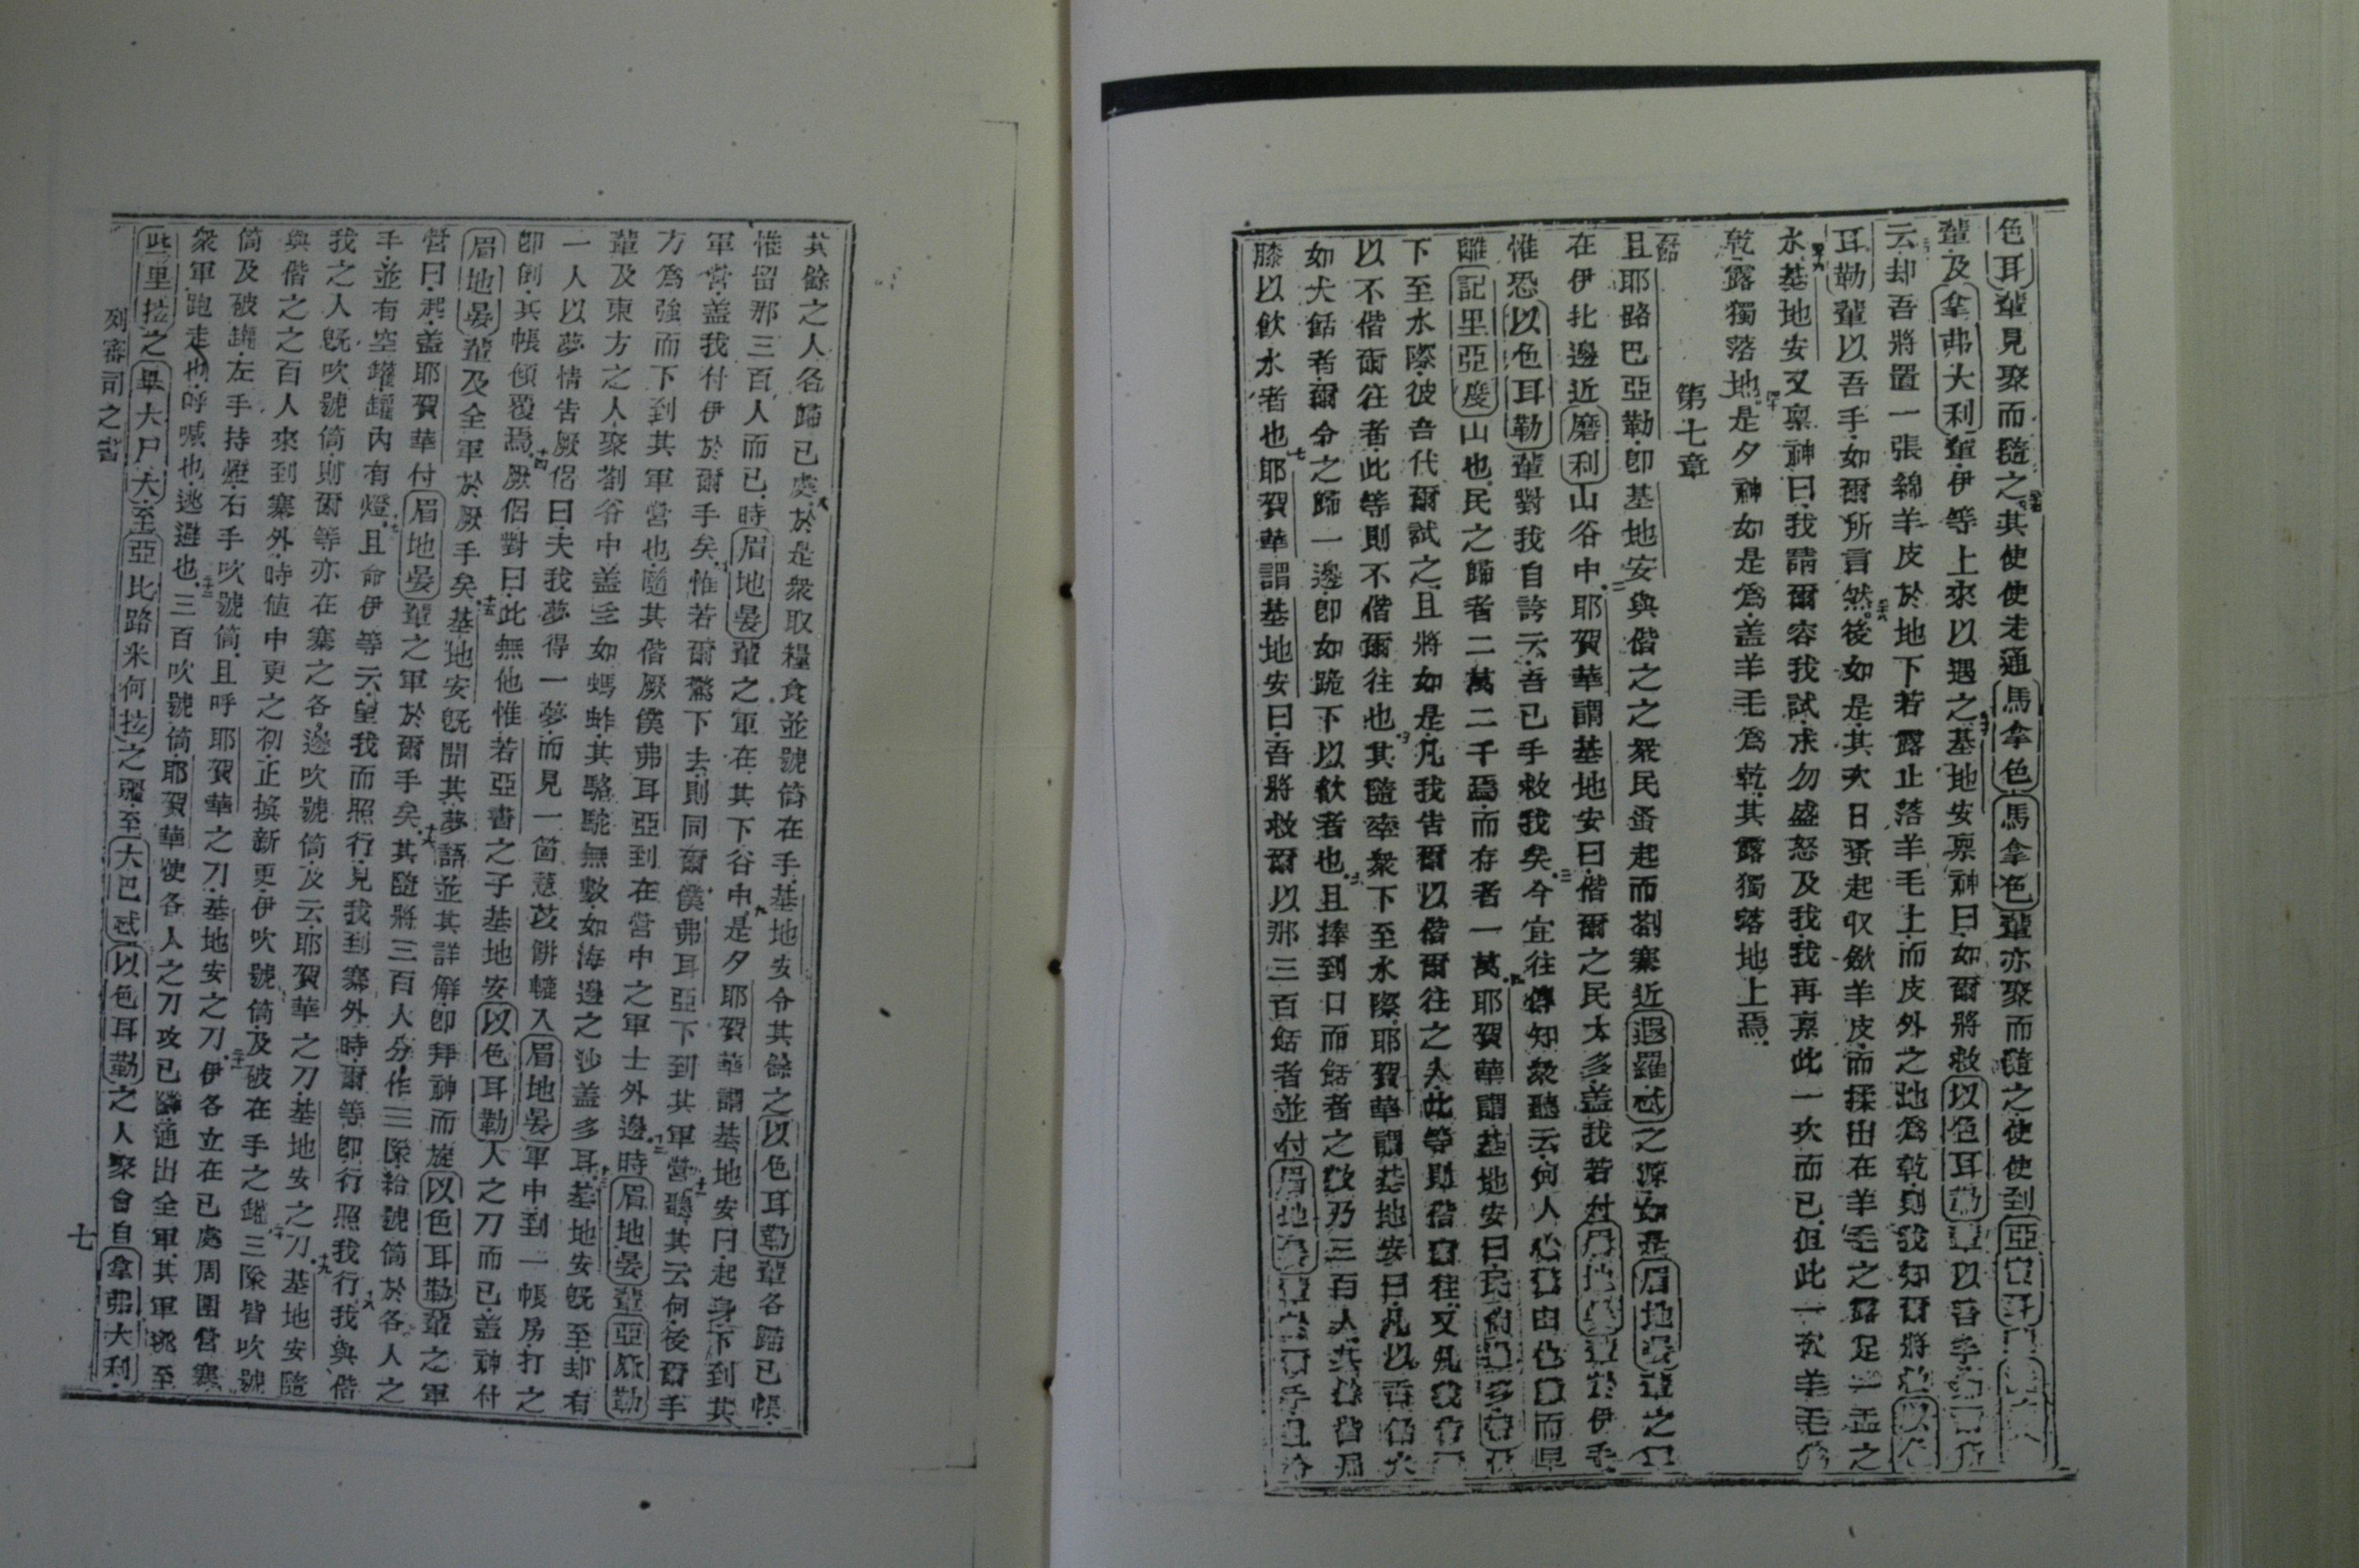 色耳輩見聚而隨之其使使走通馬拿色馬拿色輩亦聚而隨之使使到亞
輩及拿弗大利輩伊等上來以遇之基地安禀神曰如爾將救以色耳勒以吾手
云却吾將置一張綿羊皮於地下若露止落羊毛上而皮外之地為乾則我知爾將以色
耳勒輩以吾手如爾所言然後如是其次日蚤起收斂羊皮而揉出在羊毛之露足一盂之
水基地安又禀神曰我請爾容我試求勿盛怒及我我再禀此一次而已但此一次羊毛
乾露獨落地是夕神如是為盖羊毛為乾其露獨落地上焉
第七章
且耶路巴亞勒卽基地安與偕之之衆民蚤起而劄寨近遏羅忒之源如是眉地晏輩之
在伊北邊近磨利山谷中耶賀華謂基地安曰偕爾之民太多盖我若付眉地晏輩於伊手
惟恐以色耳勒輩對我自誇云吾已手救我矣今宜往傳知衆聽云何人心而早
離記里亞度山也民之歸者二萬二千焉而存者一萬耶賀華謂基地安曰民尚多
下至水際彼吾代爾試之且將如是凡我告爾以偕爾往之人此等則偕爾往又凡我
以不偕爾往者此等則不偕爾往也其隨率衆下至水際耶賀華謂基地安曰凡以舌犬
如犬餂者爾令之歸一邊卽如跪下以飲者也且捧到口而餂者之數乃三百人其餘皆屈
膝以飲水者也耶賀華謂基地安曰吾將救爾以那三百餂者並付眉地晏輩於爾手且令
其餘之人各歸已處於是衆取糧食並號筒在手基地安令其餘之以色耳勒輩各歸已帳
惟留那三百人而已時眉地晏輩之軍在其下谷中是夕耶賀華謂基地安曰起身下到其
軍營盖我付伊於爾手矣惟若爾驚下去則同爾僕弗耳亞下到其軍營聽其云何後爾手
方為強而下到其軍營也隨其偕厥僕弗耳亞到在營中之軍士外邊時眉地晏輩亞厰勒
輩及東方之人聚劄谷中盖多如螞蚱其駱駝無數如海邊之沙盖多耳基地安旣至却有
一人以夢情告厥侶曰夫我夢得一夢而見一箇薏苡餅轆入眉地晏軍中到一帳房打之
卽倒其帳傾覆焉厥侶對曰此無他惟若亞書之子基地安以色耳勒人之刀而已盖神付
眉地晏輩及全軍於厥手矣基地安旣聞其夢語並其詳解卽拜神而旋以色耳勒輩之軍
營曰起盖耶賀華付眉地晏輩之軍於爾手矣其隨將三百人分作三隊給號筒於各人之
手並有空罐罐內有燈且命伊等云望我而照行見我到寨外時爾等卽行照我行我與偕
我之人旣吹號筒則爾等亦在寨之各邊吹號筒及云耶賀華之刀基地安之刀基地安隨
與偕之之百人來到寨外時值中更之初正換新更伊吹號筒及破在手之罐三隊皆吹號
筒及破罐左手持燈右手吹號筒且呼耶賀華之刀基地安之刀伊各立在已處周圍營寨
衆軍跑走也呼喊也逃避也三百吹號筒耶賀華使各人之刀攻已鄰通出全軍其軍逃至
此里拉之畢大尸大至亞比路米何拉之疆至大巴忒以色耳勒之人聚會自拿弗大利
列審司之書
七